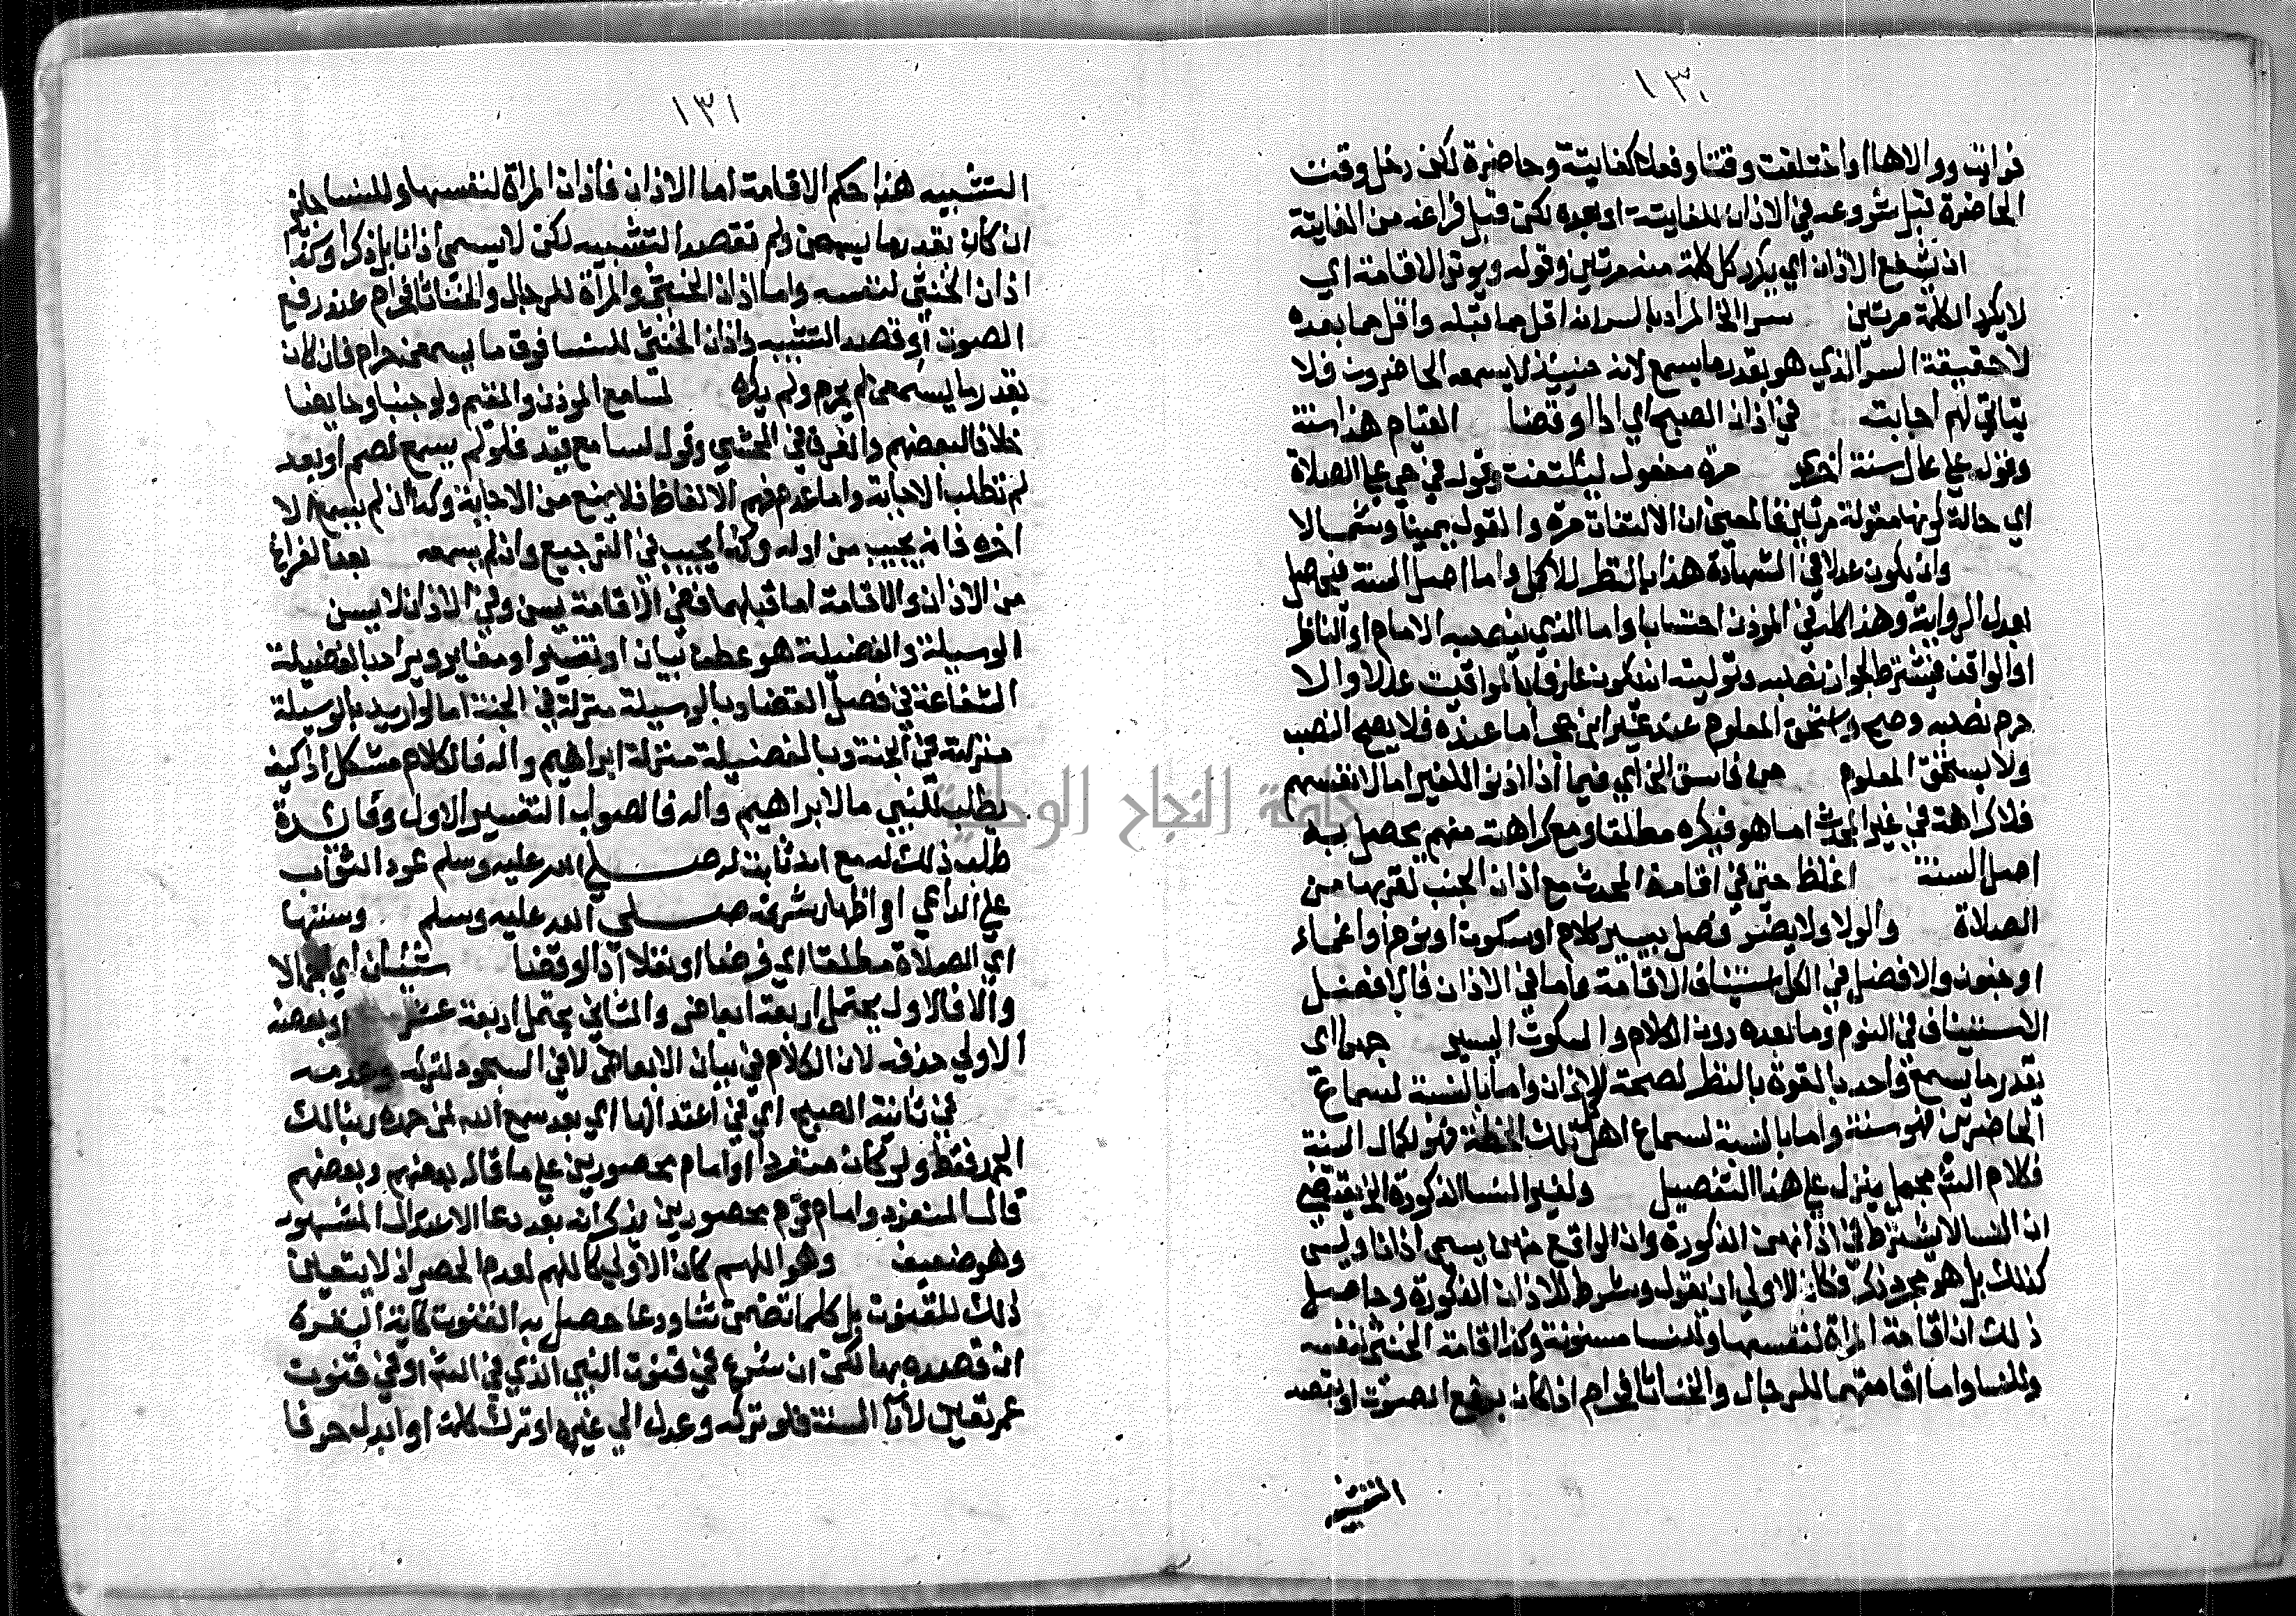 ١٣٠
فوايت ووالاها او اختلفت وقتا وفعلا كفايتة وحاضرة لكن دخل وقت
الحاضرة قبل شروعه في الاذان للفايتة او بعده لكن قبل فراغه من الفايتة
ان يشفع الاذان اي يكرر كل كلمة منه مرتين وقوله ويوتر الاقامة اي
لا يكرر الكلمة مرتين سرا الخ المراد بالسر انه اقل مما قبله واقل مما بعده
لا حقيقة السر الذي هو بقدر ما يسمع لانه حينيذ لا يسمعه الحاضرون فلا
يتاتي لهم اجابته في اذان الصبح اي ادا او قضا القيام هذا سنة
وقوله علي عال سنة اخري مرة معمول ليلتفت وقوله في حي علي الصلاة
اي حالة كونها مقولة مرتين فالمعني ان الالتفات مرة والقول يمينا وشمالا
وان يكون عدلا في الشهادة هذا بالنظر للاكمل واما اصل السنة فيحصل
بعدل الرواية وهذا كله في الموذن احتسابا واما الذي ينصبه الامام او الناظر
او الواقف فيشترط لجواز نصبه وتوليته ان يكون عارفا بالمواقيت عدلا والا
حرم نصبه وصح واستحق المعلوم عند غير ابن حجر اما عنده فلا يصح النصب
ولا يستحق المعلوم من فاسق الخ اي فيما اذا اذنوا للغير اما لانفسهم
فلا كراهة في غير المحدث اما هو فيكره مطلقا ومع كراهته منهم يحصل به
اصل السنة اغلظ حتي في اقامة المحدث مع اذان الجنب لقربها من
الصلاة والولا ولا يضر فصل بيسير كلام او سكوت او نوم او اغماء
او جنون والافضل في الكل استيناف الاقامة واما في الاذان فالافضل
الاستيناف في النوم وما بعده دون الكلام والسكوت اليسير جهرا اي
بقدر ما يسمع واحد بالقوة بالنظر لصحة الاذان واما بالنسبة لسماع
الحاضرين فهو سنة واما بالنسبة لسماع اهل تلك الخطة فهو لكمال السنة
فكلام الشم مجمل ينزل علي هذا التفصيل ولغير النسا الذكورة الخ يقتضي
ان النسا لا يشترط في اذانهن الذكورة وان الواقع منهن يسمي اذانا وليس
كذلك بل هو مجرد ذكر فكان الاولي ان يقول وشرط للاذان الذكورة وحاصل
ذلك ان اقامة المراة لنفسها وللنسا مسنونة وكذا اقامة الخنثي لنفسه
وللنسا واما اقامتهما للرجال والخناثا فحرام اذا كان برفع الصوت او بقصد
التشبيه
١٣١
التشبيه هذا حكم الاقامة اما الاذان فاذان المراة لنفسها وللنسا جايز
ان كان بقدر ما يسمعن ولم تقصد التشبيه لكن لا يسمي اذانا بل ذكرا وكذا
اذان الخنثي لنفسه واما اذان الخنثي والمراة للرجال والخناثا فحرام عند رفع
الصوت او قصد التشبيه واذان الخنثي للنسا فوق ما يسمعن حرام فان كان
بقدر ما يسمعن لم يحرم ولم يكره لسامع الموذن والمقيم ولو جنبا وحايضا
خلافا لبعضهم والفرق في المحشي وقوله لسامع قيد فلو لم يسمع لصمم او بعد
لم تطلب الاجابة واما عدم فهم الالفاظ فلا يمنع من الاجابة وكذا ان لم يسمع الا
اخره فانه يجيب من اوله وكذا يجيب في الترجيع وان لم يسمعه بعد الفراغ
من الاذان والاقامة اما قبلهما ففي الاقامة يسن وفي الاذان لا يسن
الوسيلة والفضيلة هو عطف بيان او تفسير او مغاير ويراد بالفضيلة
الشفاعة في فصل القضا وبالوسيلة منزلة في الجنة اما لو اريد بالوسيلة
منزلة في الجنة وبالفضيلة منزلة ابراهيم واله فالكلام مشكل اذ كيف
يطلب للنبي ما لابراهيم واله فالصواب التفسير الاول وفائدة
طلب ذلك له مع انه ثابت له صلي الله عليه وسلم عود الثواب
علي الداعي او اظهار شرفه صلي الله عليه وسلم وسننها
اي الصلاة مطلقا اي فرضا او نفلا ادا او قضا شيئان اي اجمالا
والا فالاول يحتمل اربعة ابعاض والثاني يحتمل اربعة عشر او بعضه
الاولي حذفه لان الكلام في بيان الابعاض لا في السجود لتركه وعدمه
في ثانية الصبح اي في اعتدالها اي بعد سمع الله لمن حمده ربنا لك
الحمد فقط ولو كان منفردا او امام محصورين علي ما قاله بعضهم وبعضهم
قال المنفرد وامام قوم محصورين يذكرانه بعد دعا الاعتدال المشهور
وهو ضعيف وهو اللهم كان الاولي كاللهم لعدم الحصر اذ لا يتعين
ذلك للقنوت بل كلما تضمن ثنا ودعا حصل به القنوت كاية البقرة
ان قصده بها لكن ان شرع في قنوت النبي الذي في الشم او في قنوت
عمر تعين لاداء السنة فلو تركه وعدل الي غيره او ترك كلمة او ابدل حرفا
جامعة النجاح الوطنية